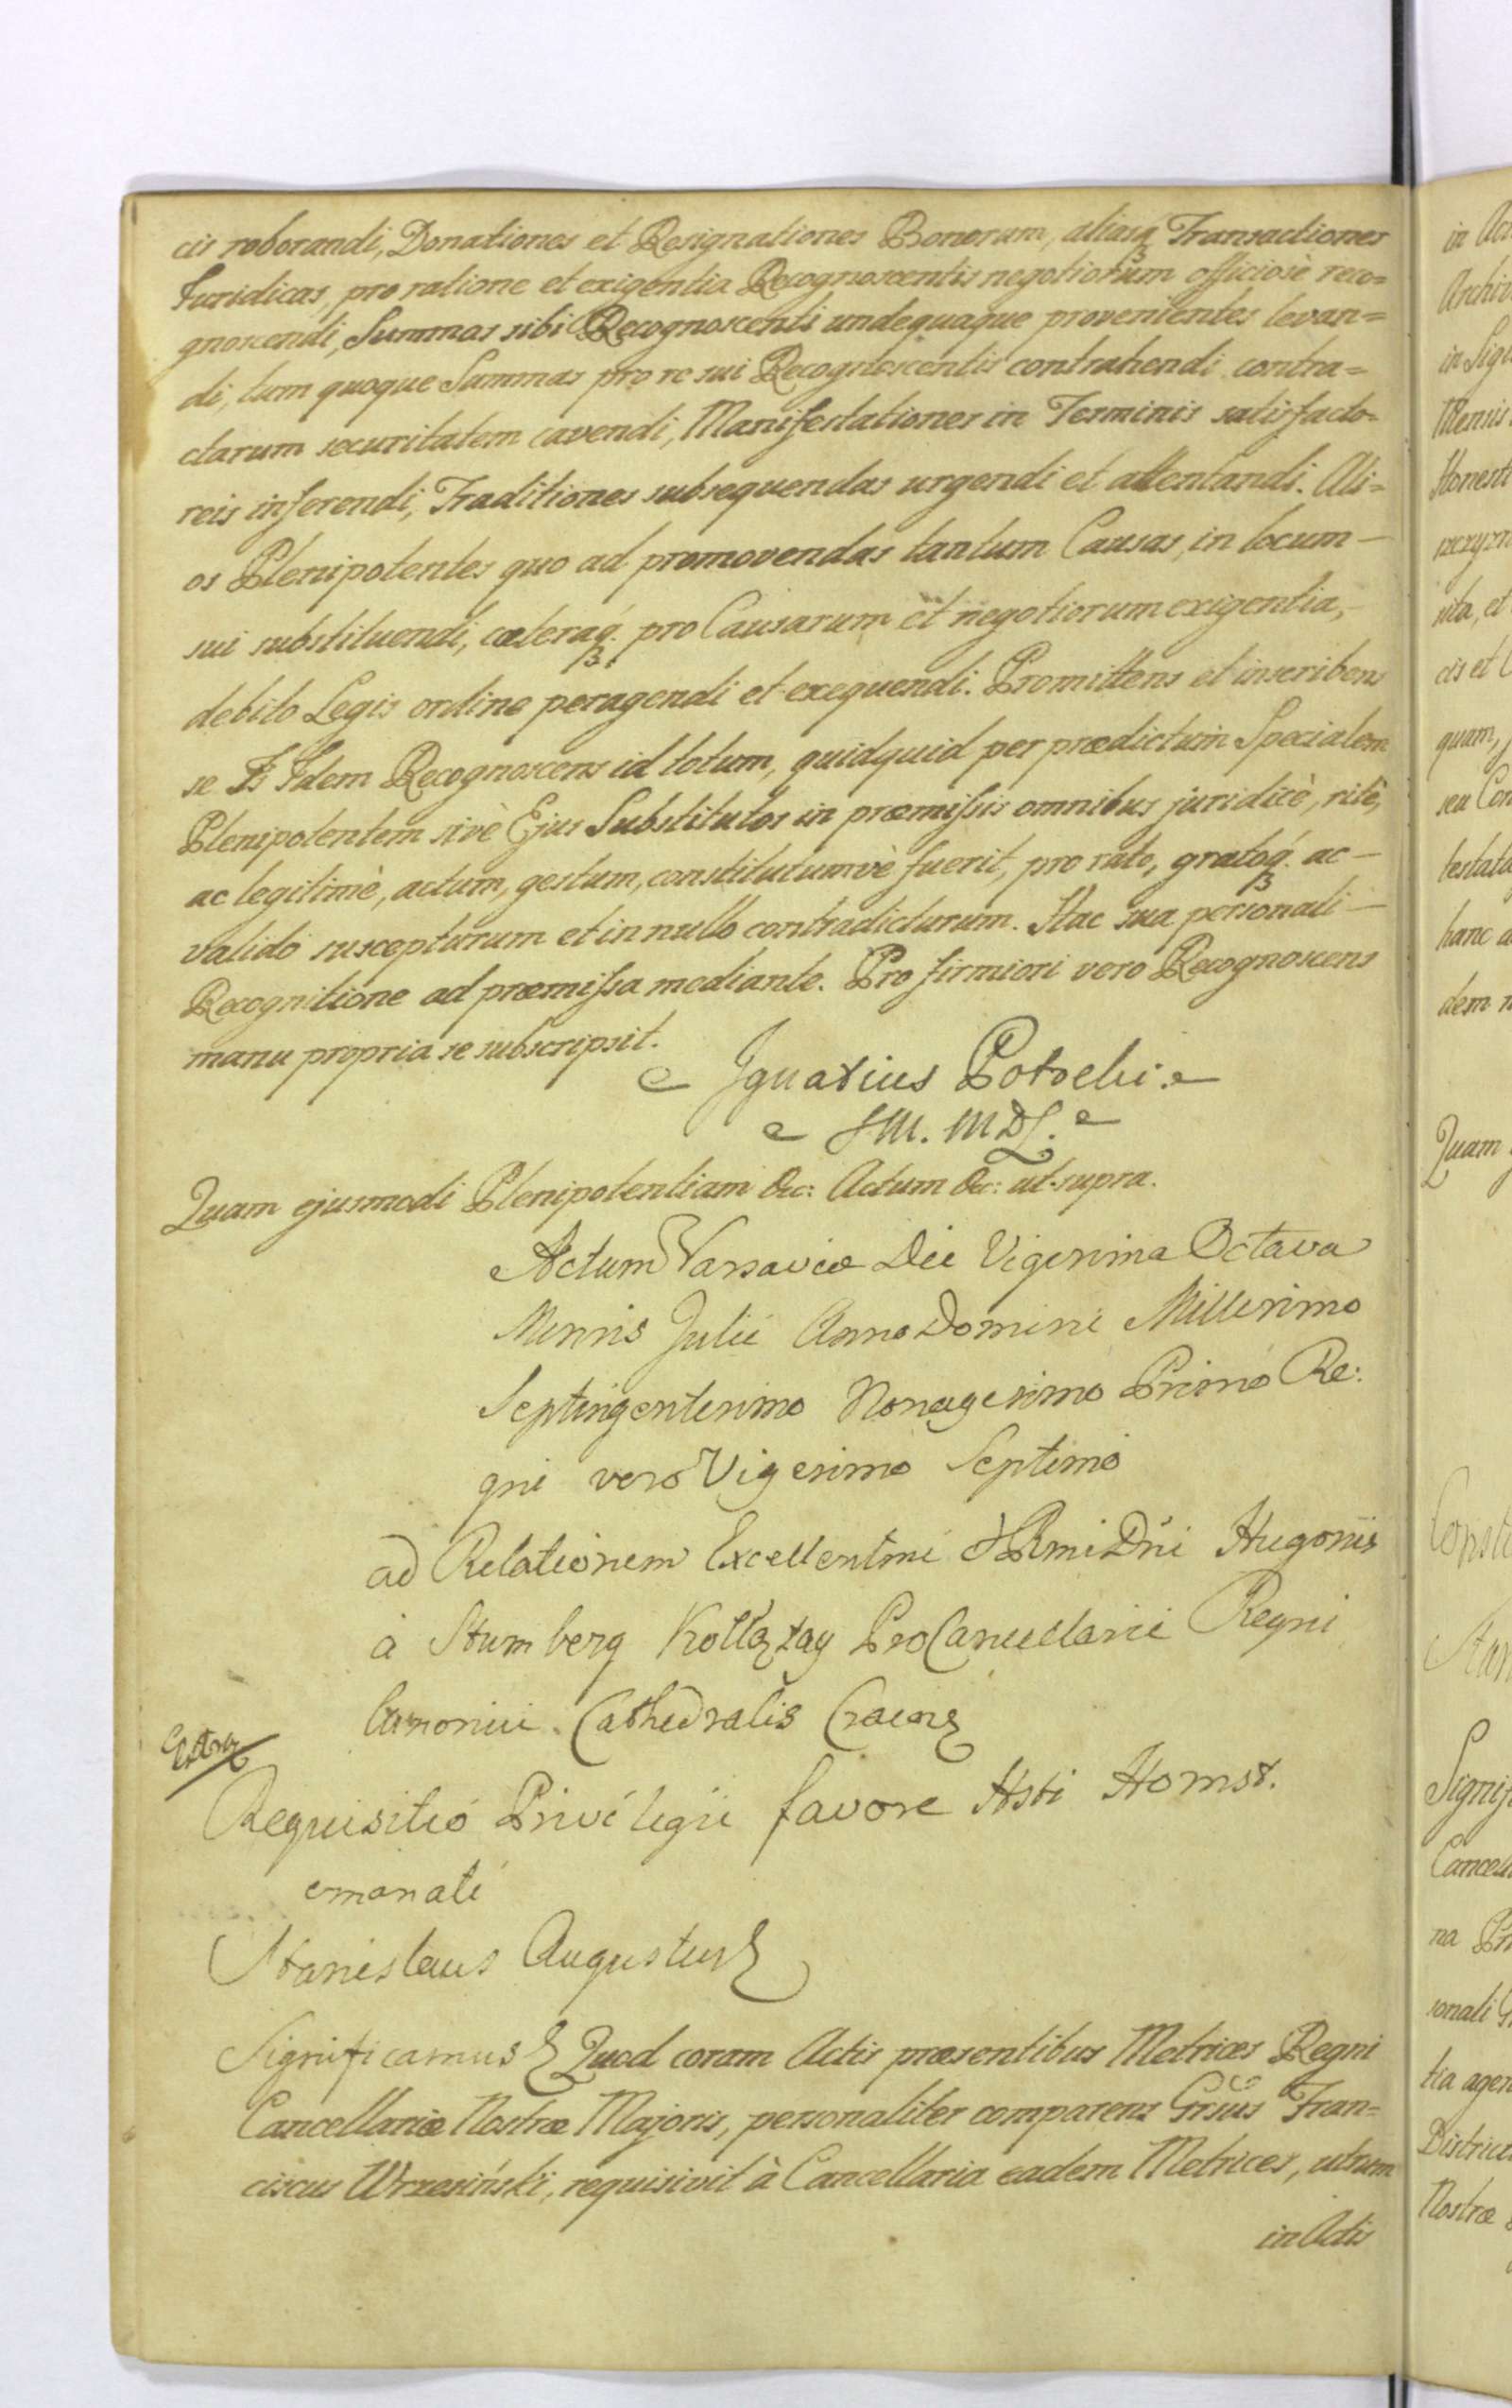 cis roborandi, Donationes et Resignationes Bonorum, aliasq₃ Transactiones
Juridicas, pro ratione et exigentia Recognoscentis negotiorum officiosè reco=
gnoscendi, Summas sibi Recognoscenti undequaque provenientes levan=
di, tum quoque Summas pro re sui Recognoscentis contrahendi contra=
ctarum securitatem cavendi, Manifestationes in Terminis satisfacto=
reis inferendi, Traditiones subsequendas urgendi et attentandi. Ali=
os Plenipotentes quo ad promovendas tantum Causas, in locum –
sui substituendi, cæteraq₃ pro Causarum et negotiorum exigentia, –
debito Legis ordine peragendi et exequendi. Promittens et inscribens
se Is Idem Recognoscens id totum, quidquid per prædictum Specialem
Plenipotentem sivè Ejus Substitutos in præmissis omnibus juridicè, ritè,
ac legitimè, actum, gestum, constitutumvè fuerit, pro rato, gratoq₃ ac –
valido suscepturum et in nullo contradicturum. Hac sua personali –
Recognitione ad præmissa mediante. Pro firmiori vero Recognoscens
manu propria se subscripsit.
Ignatius Potocki
M. MDL.
Quam ejusmodi Plenipotentiam &c: Actum &c: ut supra.
Actum Varsaviæ Die Vigesima Octava
Mensis Julii Anno Domini Millesimo
Septingentesimo Nonagesimo Primo Re:
gni vero Vigesimo Septimo
ad Relationem Excellentmi & Rmi Dñi Hugonis
à Stumberg Kołłątay ProCancellarii Regni
Canonici Cathedralis Cracov
Requisitio Privilegii favore Hsti Homst.
emanati
Stanislaus Augustus
Significamus Quod coram Actis præsentibus Metrices Regni
Cancellariæ Nostræ Majoris, personaliter comparens Grsus Fran=
ciscus Wrzesiński, requisivit à Cancellaria eadem Metrices, utrum
in Actis
in Act
Archiv
in Sig
Mensis
Honest
sita, et
cis et C
quam,
seu Con
testata
hanc a
dem n
Quam
Signif
Cancell
na Pr
sonali
tia agen
District
Nostræ